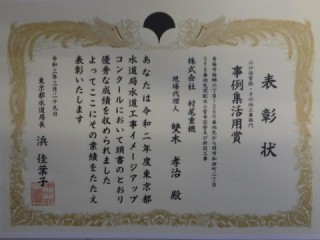 表彰状
事例集活用賞
株式会社 村尾重機
現場代理人 雙木 孝治 殿
あなたは令和二年度東京都
水道局水道工事イメージアップ
コンクールにおいて頭書のとおり
優秀な成績を収められました
よってここにその業績をたたえ
表彰いたします
令和三年三月二十九日
東京都水道局長 浜 佳葉子